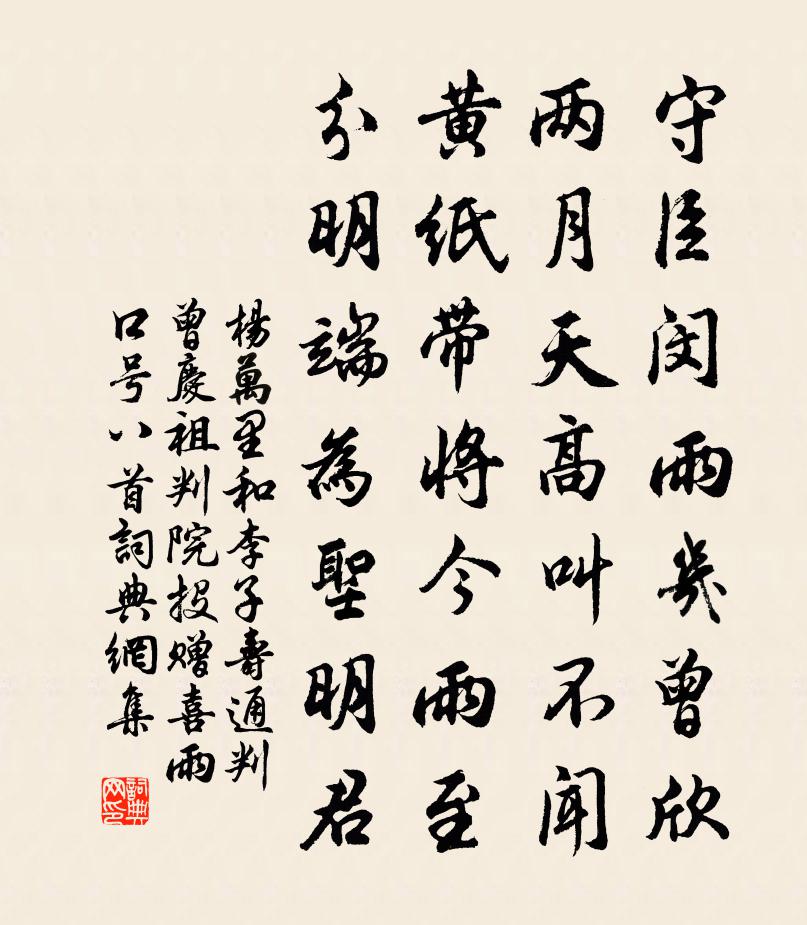 守臣闵雨几曾欣
两月天高叫不闻
黄紙带将今雨至
分明端為聖明君
楊萬里和李子壽通判
曾慶祖判院投赠喜雨
口号八首詞典網集
詞典网印